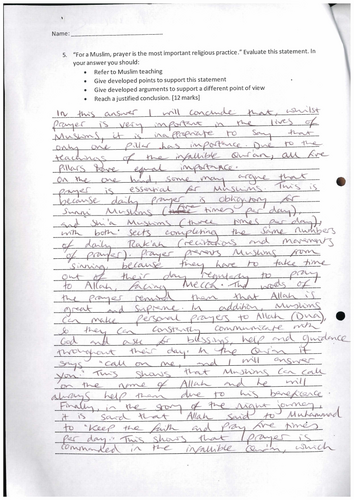 Name:
5. "For a Muslim, prayer is the most important religious practice." Evaluate this statement. In
your answer you should:
• Refer to Muslim teaching
• Give developed points to support this statement
• Give developed arguments to support a different point of view
• Reach a justified conclusion. [12 marks]
In this answer I will conclude that, whilst
prayer is very important in the lives of
Muslims, it is inappropriate to say that
only one pillar has importance. Due to the
teachings of the infallible Qur'an, all five
pillars have equal importance.
On the one hand some may argue that
prayer is essential for Muslims. This is
because daily prayer is obligatory for
Sunni Muslims (five times per day)
and Shi'a Muslims (three times per day),
with both sects completing the same numbers
of daily Rak'ah (recitations and movements
of prayer). Prayer prevents Muslims from
sinning because they have to take time
out of their day regularly to pray
to Allah, facing Mecca. The words of
the prayer remind them that Allah is
great and supreme. In addition Muslims
can make personal prayers to Allah (Du'a),
so they can constantly communicate with
God and ask for blessings, help and guidance
throughout their day. In the Qur'an it
says "call on me, and I will answer
you." This shows that Muslims can call
on the name of Allah and he will
always help them due to his beneficence.
Finally, in the story of the night journey,
it is said that Allah said to Muhammad
to "Keep the faith and pray five times
per day." This shows that prayer is
commanded in the infallible Qur'an, which